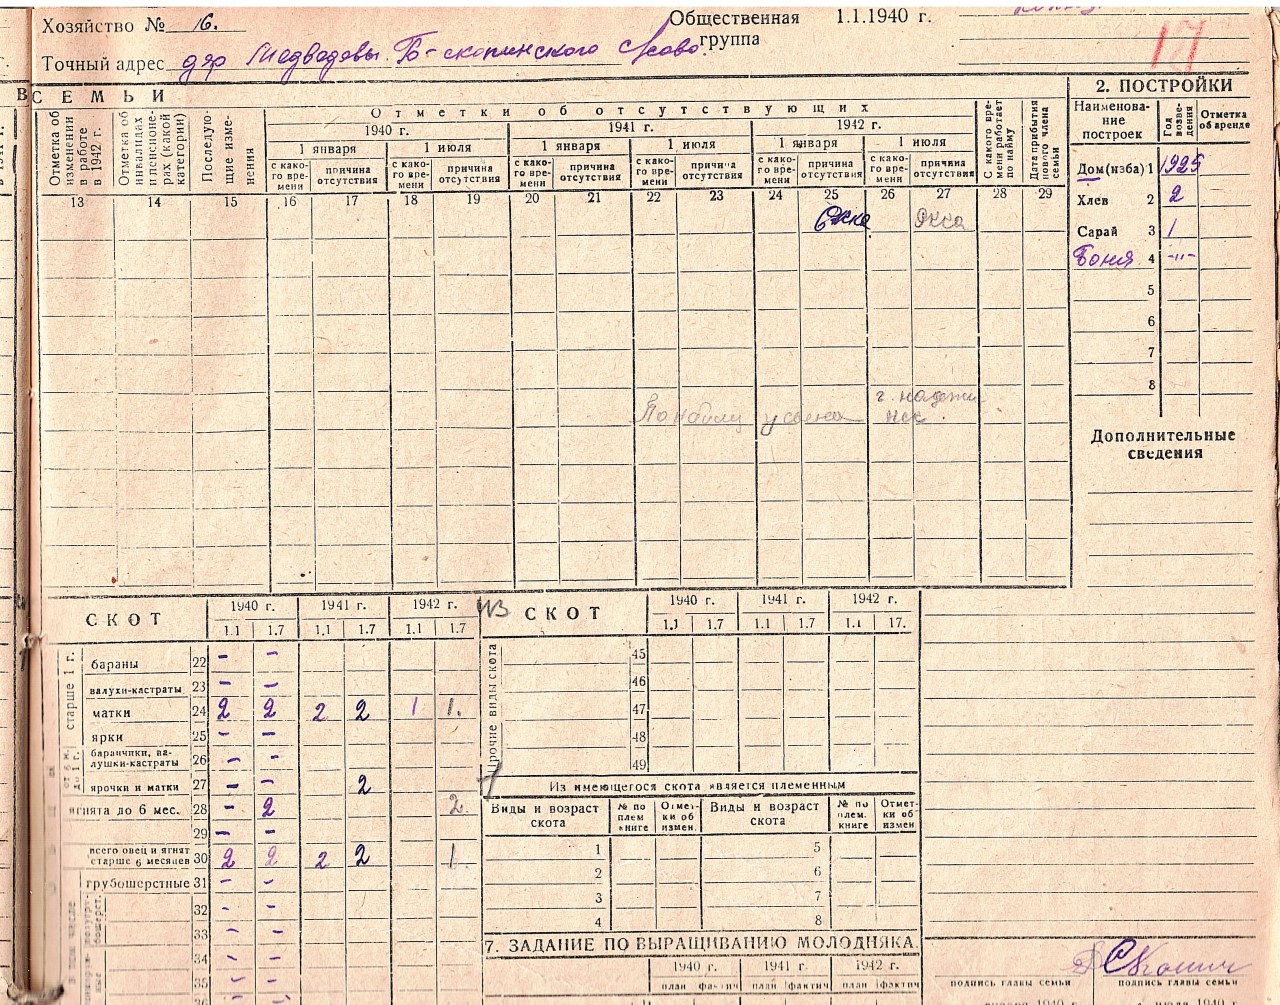 Хозяйство № 16.
Общественная группа 1.1.1940 г.
Точный адрес дер Медведевы Б-скопинского
В СЕМЬИ
Отметка об изменении в работе в 1942 г.
Отметка об инвалидах и пенсионерах (какой категории)
Последующие изменения
Отметки об отсутствующих
1940 г. 1941 г. 1942 г.
1 января 1 июля 1 января 1 июля 1 января 1 июля
с какого времени причина отсутствия с какого времени причина отсутствия с какого времени причина отсутствия с какого времени причина отсутствия с какого времени причина отсутствия с какого времени причина отсутствия
С какого времени работает по найму
Дата прибытия нового члена семьи
13 14 15 16 17 18 19 20 21 22 23 24 25 26 27 28 29
2. ПОСТРОЙКИ
Наименование построек Год возведения Отметка об аренде
Дом (изба) 1 1925
Хлев 2 2
Сарай 3 1
Баня 4 -"-
5
6
7
8
Дополнительные
сведения
СКОТ 1940 г. 1941 г. 1942 г.
1.1 1.7 1.1 1.7 1.1 1.7
старше 1 г.
бараны 22 - -
валухи-кастраты 23 - -
матки 24 2 2 2 2 1 1.
ярки 25 - -
от 6 м. до 1 г.
баранчики, валушки-кастраты 26 - -
ярочки и матки 27 - - 2
ягнята до 6 мес. 28 - 2 2
29 - -
всего овец и ягнят старше 6 месяцев 30 2 2 2 2 1
в том числе
грубошерстные 31 - -
32 - -
33 - -
34 - -
35 - -
36 - -
СКОТ 1940 г. 1941 г. 1942 г.
1.1 1.7 1.1 1.7 1.1 17.
прочие виды скота
45
46
47
48
49
Из имеющегося скота является племенным
Виды и возраст скота № по плем книге Отметки об измен. Виды и возраст скота № по плем. книге Отметки об измен
1 5
2 6
3 7
4 8
7. ЗАДАНИЕ ПО ВЫРАЩИВАНИЮ МОЛОДНЯКА.
1940 г. 1941 г. 1942 г.
план фактич план фактич план фактич
подпись главы семьи подпись главы семьи